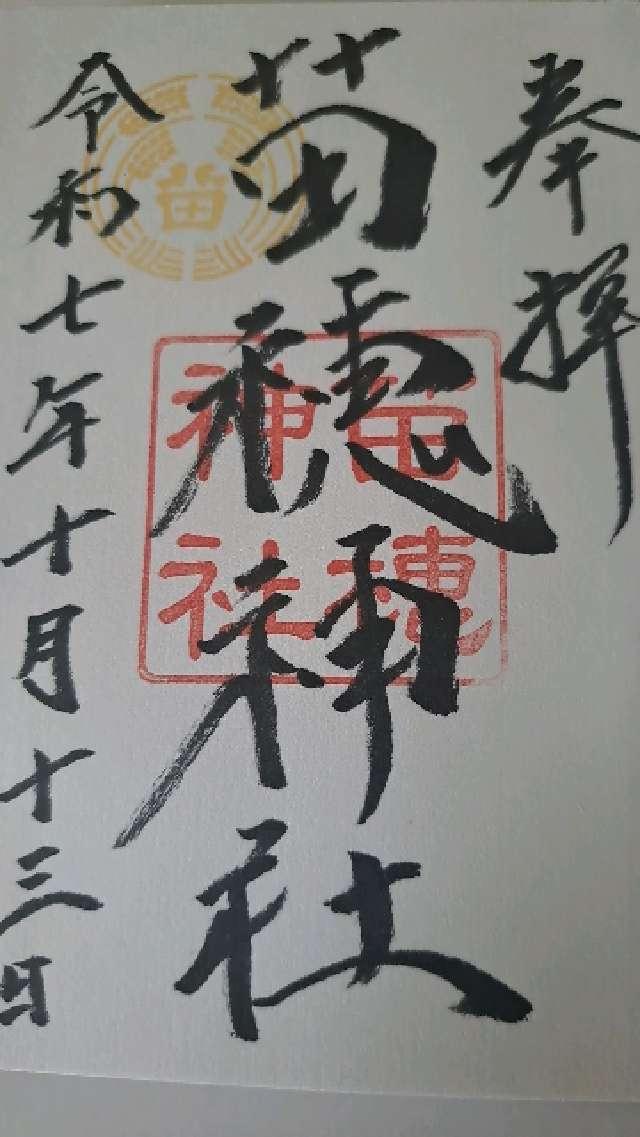 奉拝
苗穂神社
苗穂
神社
苗
令和七年十月十三日